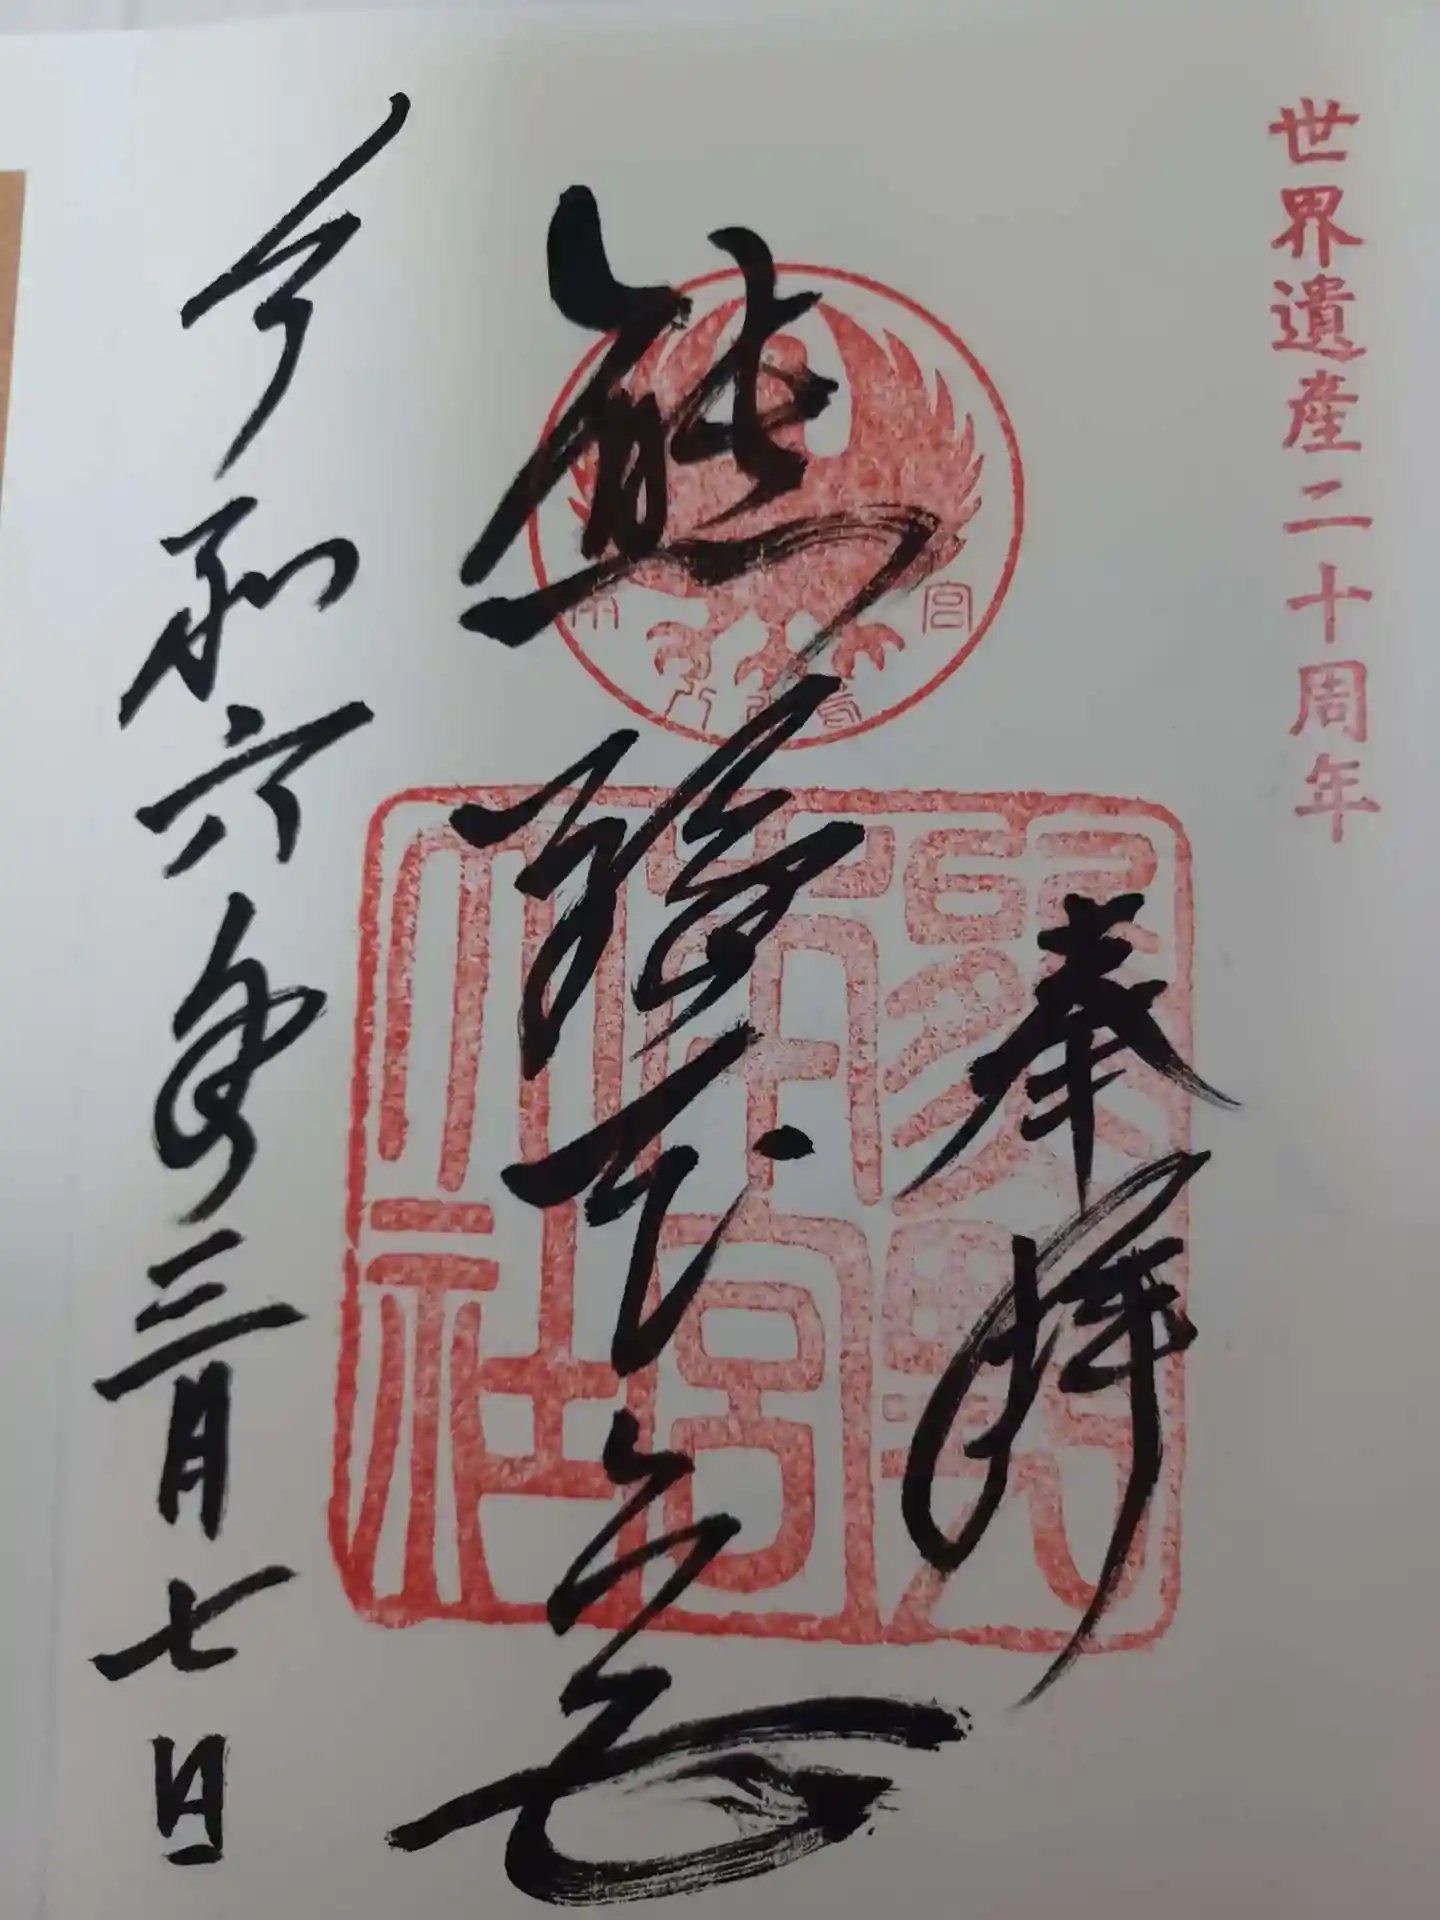 世界遺産二十周年
奉拝
熊野本宮
令和六年三月七日
熊野
本宮
大社